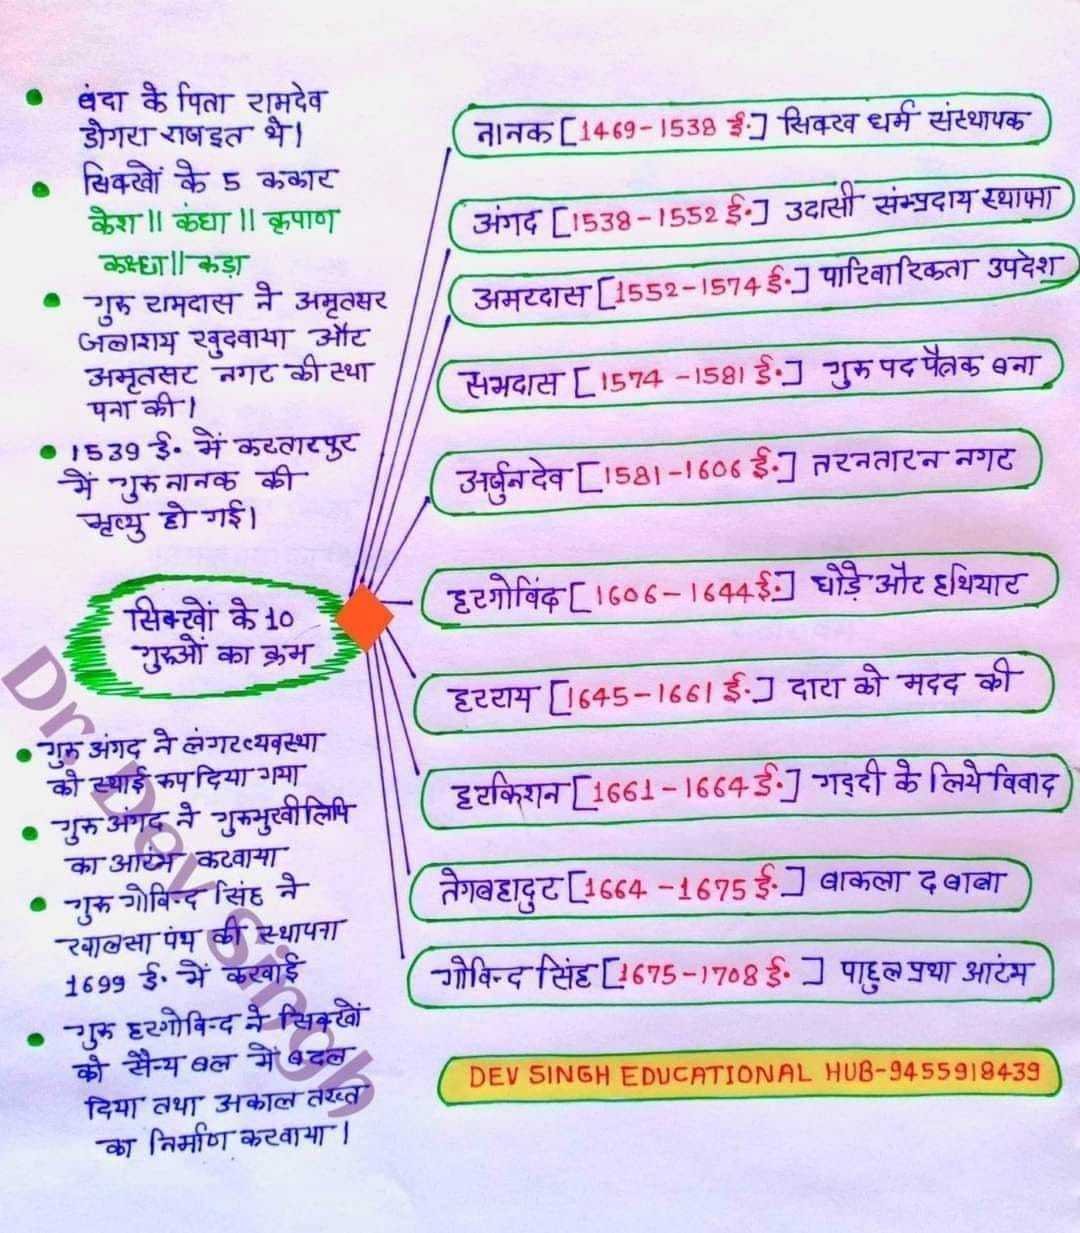 बंदा के पिता रामदेव
डोगरा राजपूत थे।
सिक्खों के 5 ककार
केश || कंघा || कृपाण
कच्छा || कड़ा
गुरु रामदास ने अमृतसर
जलाशय खुदवाया और
अमृतसर नगर की स्था
पना की।
1539 ई. में करतारपुर
में गुरु नानक की
मृत्यु हो गई।
सिक्खों के 10
गुरुओं का क्रम
गुरु अंगद ने लंगर व्यवस्था
को स्थाई रूप दिया गया
गुरु अंगद ने गुरुमुखी लिपि
का आरंभ करवाया
गुरु गोविन्द सिंह ने
खालसा पंथ की स्थापना
1699 ई. में करवाई
गुरु हरगोविन्द ने सिक्खों
को सैन्य बल में बदल
दिया तथा अकाल तख्त
का निर्माण करवाया।
नानक [1469-1538 ई.] सिक्ख धर्म संस्थापक
अंगद [1538-1552 ई.] उदासी सम्प्रदाय स्थापना
अमरदास [1552-1574 ई.] पारिवारिकता उपदेश
रामदास [1574-1581 ई.] गुरु पद पैतृक बना
अर्जुन देव [1581-1606 ई.] तरनतारन नगर
हरगोविंद [1606-1644 ई.] घोड़े और हथियार
हरराय [1645-1661 ई.] दारा को मदद की
हरकिशन [1661-1664 ई.] गद्दी के लिये विवाद
तेगबहादुर [1664-1675 ई.] बाकला द बाबा
गोविन्द सिंह [1675-1708 ई.] पाहुल प्रथा आरंभ
DEV SINGH EDUCATIONAL HUB-9455918439
Dr. Dev Singh